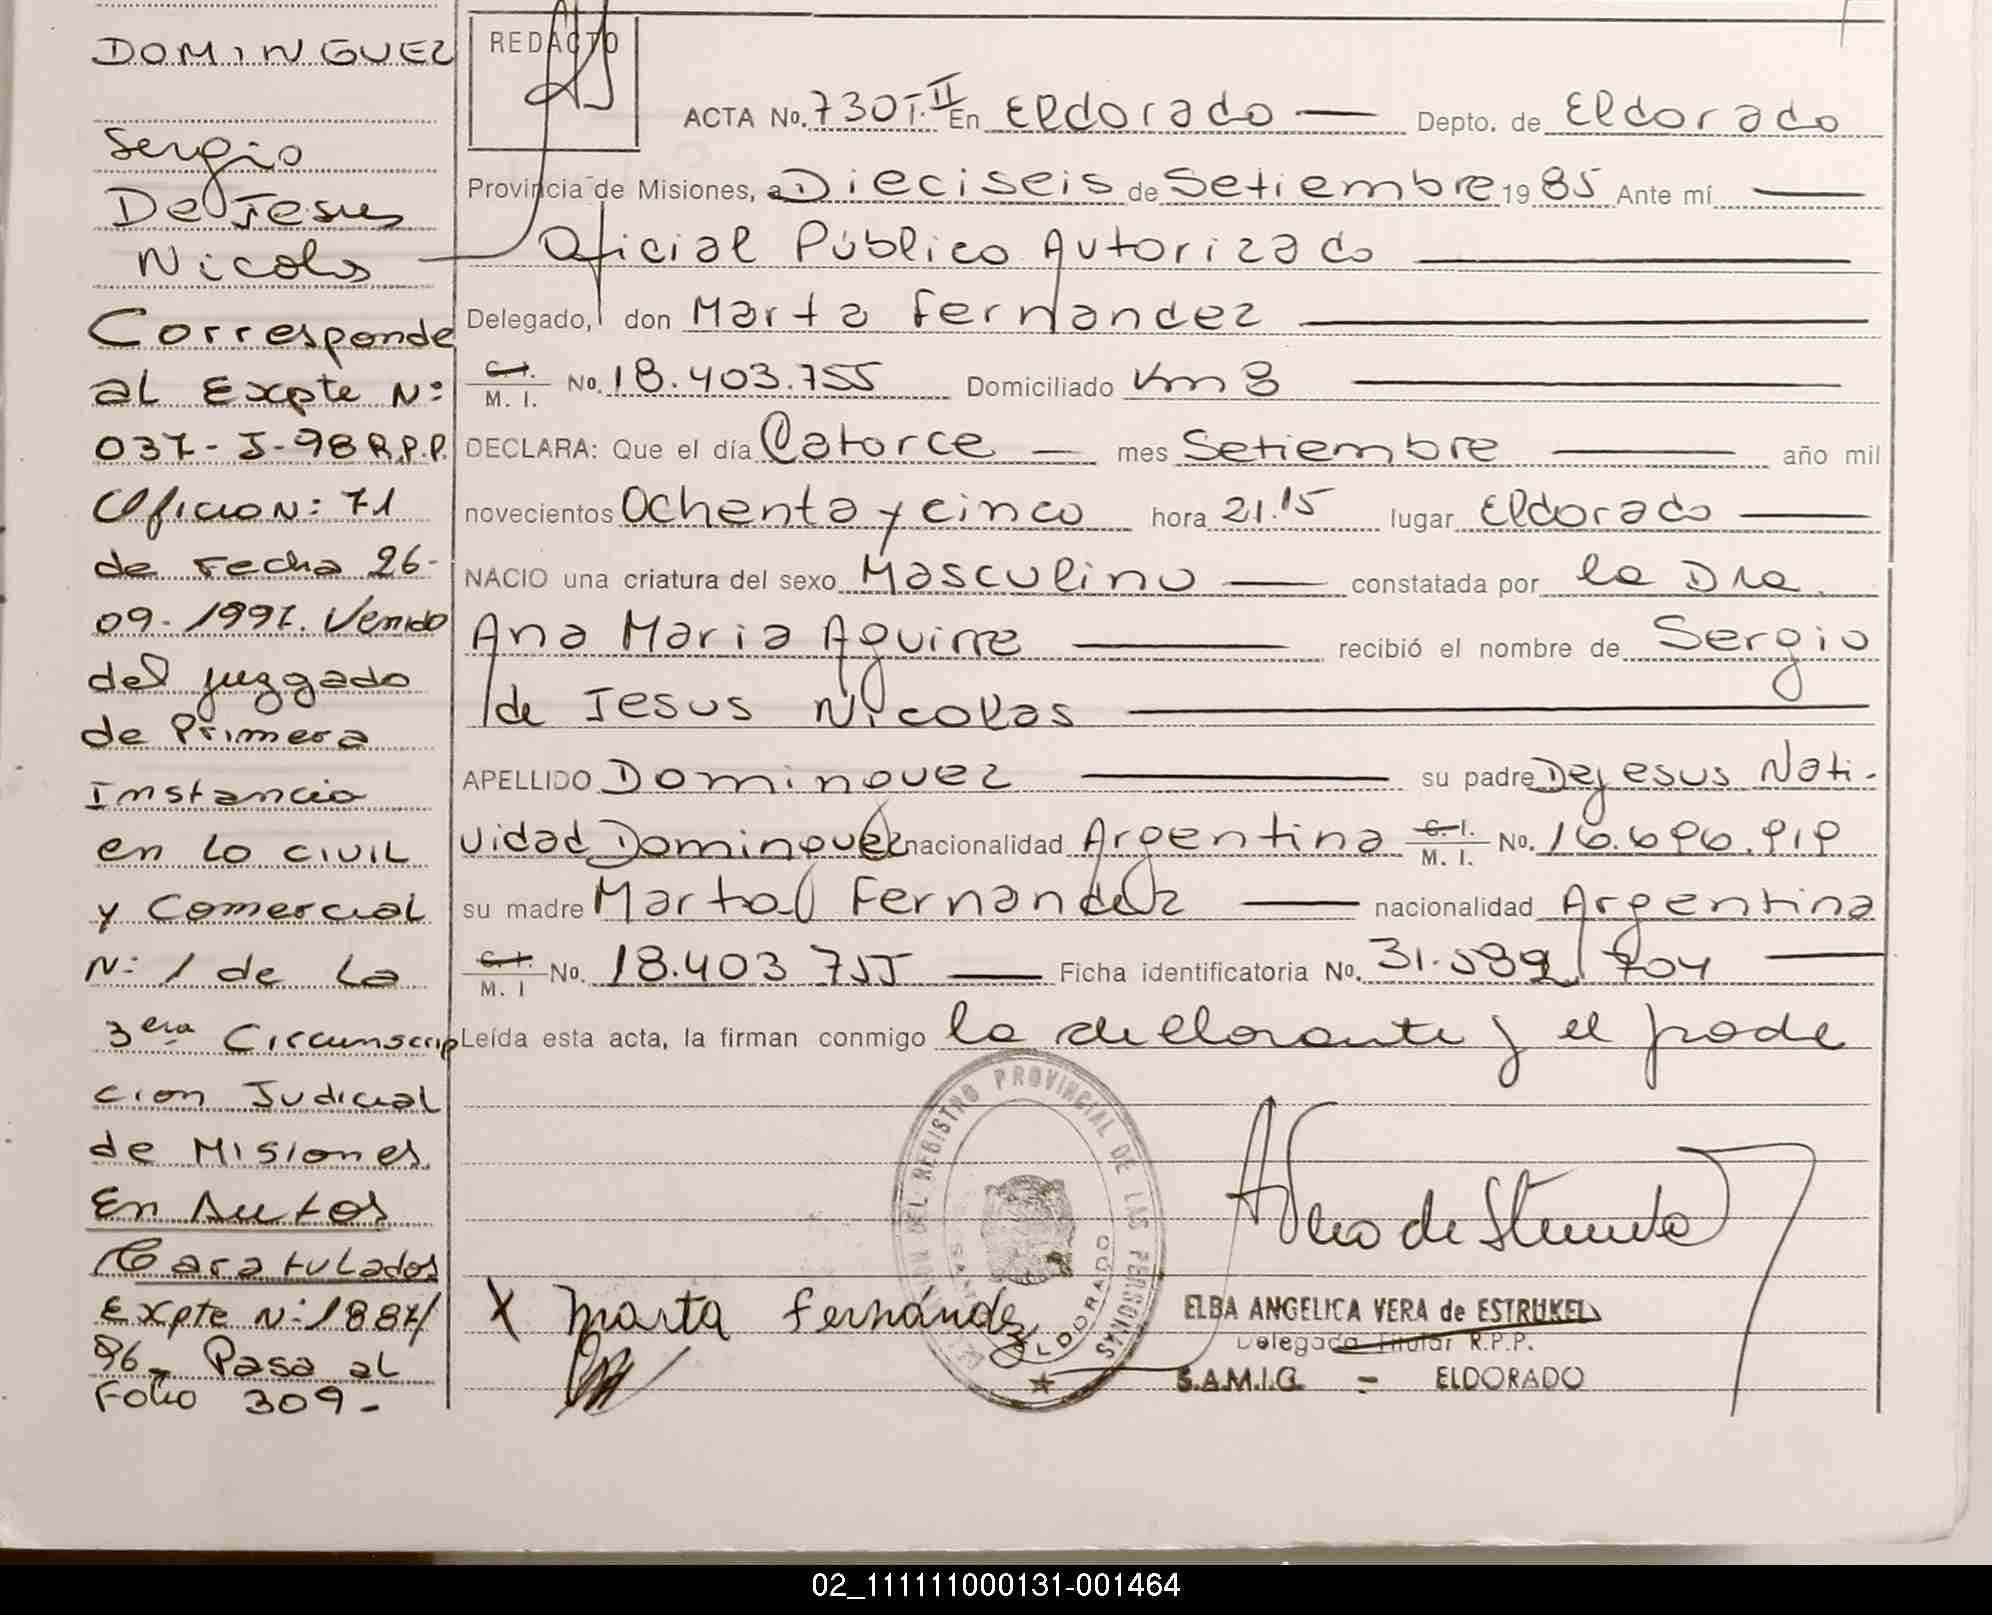 DOMINGUEZ
Sergio
De Jesus
Nicolas
Corresponde
al Expte N:
037-J-98 R.P.P.
Oficio N: 71
de Fecha 26-
09-1997. Venido
del juzgado
de Primera
Instancia
en lo civil
y Comercial
N: 1 de La
3era Circunscrip
cion Judicial
de Misiones.
En Autos
Caratulados
Expte N: 1887/
96- Pasa al
Folio 309-
REDACTO
ACTA No. 730 T. II En Eldorado — Depto. de Eldorado
Provincia de Misiones, a Dieciseis de Setiembre 1985 Ante mí —
Oficial Público Autorizado
Delegado, don Marta Fernandez
C.I. M. I. No. 18.403.755 Domiciliado Km 8
DECLARA: Que el día Catorce — mes Setiembre — año mil
novecientos Ochenta y cinco hora 21.15 lugar Eldorado —
NACIO una criatura del sexo Masculino — constatada por la Dra.
Ana Maria Aguirre — recibió el nombre de Sergio
de Jesus Nicolas
APELLIDO Dominguez — su padre Dejesus Nati-
vidad Dominguez nacionalidad Argentina C.I. M. I. No. 16.696.919
su madre Marta Fernandez — nacionalidad Argentina
C.I. M. I No. 18.403 755 — Ficha identificatoria No. 31.589.704 —
Leída esta acta, la firman conmigo la declarante y el padre
DEL REGISTRO PROVINCIAL DE LAS PERSONAS
ELDORADO
X Marta Fernández
ELBA ANGELICA VERA de ESTRUKEL
Delegada Titular R.P.P.
S.A.M.I.C. - ELDORADO
02_111111000131-001464